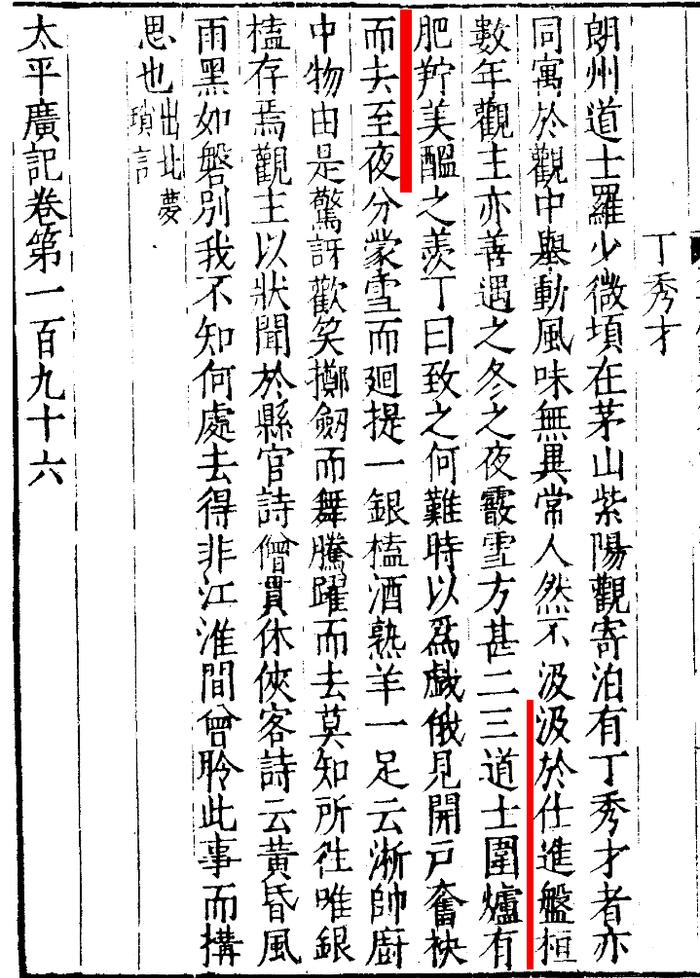 丁秀才
朗州道士羅少微頃在茅山紫陽觀寄泊有丁秀才者亦
同寓於觀中舉動風味無異常人然不汲汲於仕進盤桓
數年觀主亦善遇之冬之夜霰雪方甚二三道士圍爐有
肥羜美醞之羨丁曰致之何難時以爲戲俄見開戶奮袂
而去至夜分蒙雪而迴提一銀榼酒熟羊一足云浙帥厨
中物由是驚訝歡笑擲劒而舞騰躍而去莫知所徃唯銀
榼存焉觀主以狀聞於縣官詩僧貫休俠客詩云黃昏風
雨黑如磐別我不知何處去得非江淮間曾聆此事而搆
思也出北夢
瑣言
太平廣記卷第一百九十六